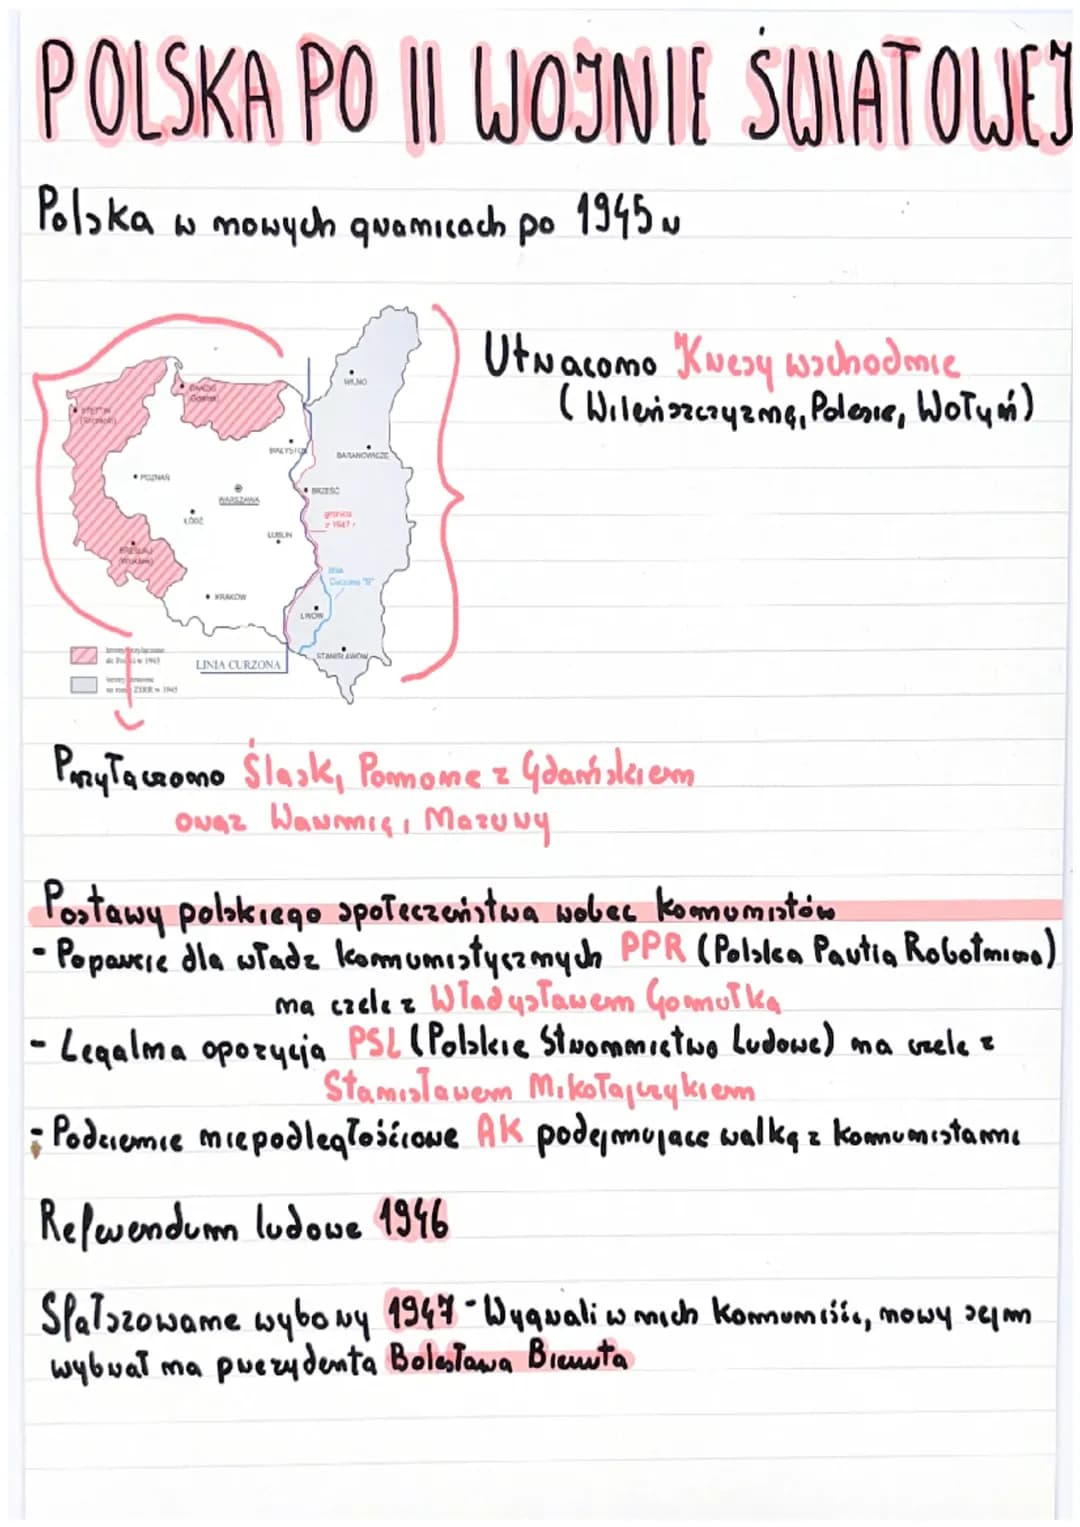 POLSKA PO II WOJNIE ŚWIATOWEJ
Polska w nowych granicach po 1945r
Utracono Kresy wschodnie
(Wileńszczyznę, Polesie, Wołyń)
WILNO
GDAŃSK
STETTIN
(Szczecin)
BIAŁYSTOK
BARANOWICZE
POZNAŃ
BRZEŚĆ
WARSZAWA
granica
z 1947 r
ŁÓDŹ
LUBLIN
BRESLAU
(Wrocław)
linia
Curzona "B"
KRAKÓW
LWÓW
STANISŁAWÓW
LINIA CURZONA
tereny przyłączone
do Polski w 1945
tereny
na rzecz ZSRR w 1945
Przyłączono Śląsk, Pomorze z Gdańskiem
oraz Warmię i Mazury
Postawy polskiego społeczeństwa wobec komunistów
- Poparcie dla władz komunistycznych PPR (Polska Partia Robotnicza)
na czele z Władysławem Gomułką
- Legalna opozycja PSL (Polskie Stronnictwo Ludowe) na czele z
Stanisławem Mikołajczykiem
- Podziemie niepodległościowe AK podejmujące walkę z komunistami
Referendum ludowe 1946
Sfałszowane wybory 1947 - Wygrali w nich komuniści, nowy sejm
wybrał na prezydenta Bolesława Bieruta